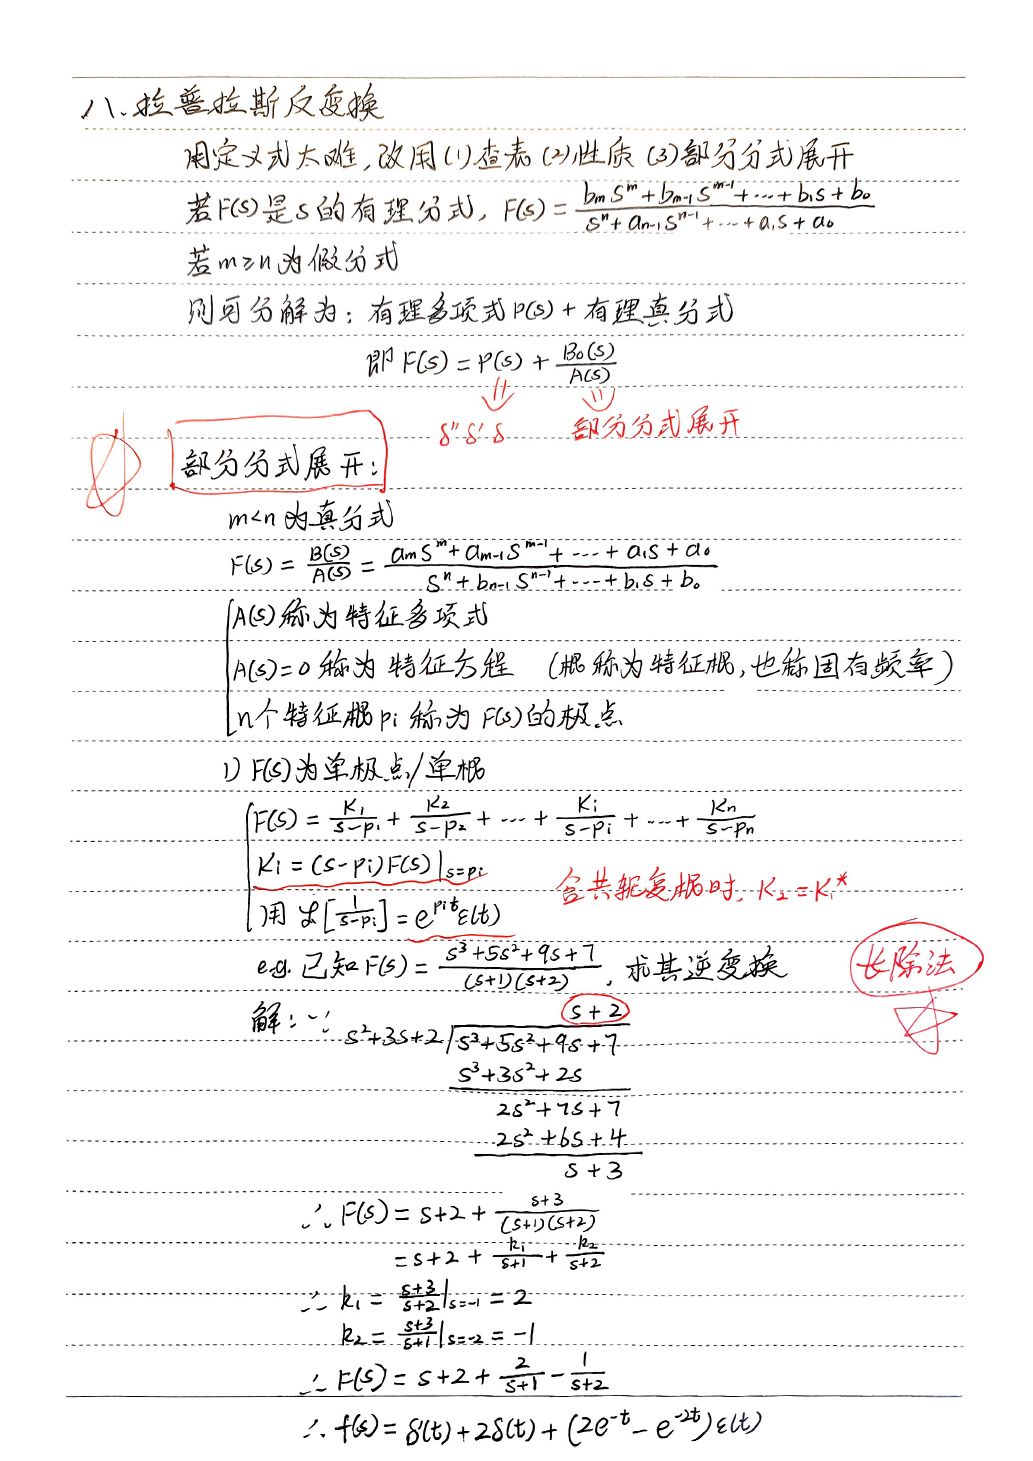 八、拉普拉斯反变换
用定义式太难,改用(1)查表(2)性质(3)部分分式展开
若F(s)是s的有理分式, F(s) = (bₘsᵐ+bₘ₋₁sᵐ⁻¹+…+b₁s+b₀)/(sⁿ+aₙ₋₁sⁿ⁻¹+…+a₁s+a₀)
若m≥n为假分式
则可分解为: 有理多项式P(s)+有理真分式
即 F(s) = P(s) + B₀(s)/A(s)
δ'' δ' δ 部分分式展开
部分分式展开:
m<n 为真分式
F(s) = B(s)/A(s) = (aₘsᵐ+aₘ₋₁sᵐ⁻¹+…+a₁s+a₀)/(sⁿ+bₙ₋₁sⁿ⁻¹+…+b₁s+b₀)
A(s)称为特征多项式
A(s)=0称为特征方程 (根称为特征根,也称固有频率)
n个特征根pi 称为F(s)的极点
1) F(s)为单极点/单根
F(s) = K₁/(s-p₁) + K₂/(s-p₂) + … + Ki/(s-pi) + … + Kn/(s-pn)
Ki = (s-pi)F(s)|s=pi
含共轭复根时, K₂=K₁*
用 ℒ[1/(s-pi)] = e^(pit)ε(t)
e.g. 已知F(s) = (s³+5s²+9s+7)/((s+1)(s+2)), 求其逆变换
长除法
解: ∵ s+2
s²+3s+2 √ s³+5s²+9s+7
s³+3s²+2s
2s²+7s+7
2s²+6s+4
s+3
∴ F(s) = s+2 + (s+3)/((s+1)(s+2))
= s+2 + k₁/(s+1) + k₂/(s+2)
∴ k₁ = (s+3)/(s+2)|s=-1 = 2
k₂ = (s+3)/(s+1)|s=-2 = -1
∴ F(s) = s+2 + 2/(s+1) - 1/(s+2)
∴ f(s) = δ'(t)+2δ(t)+(2e⁻ᵗ-e⁻²ᵗ)ε(t)